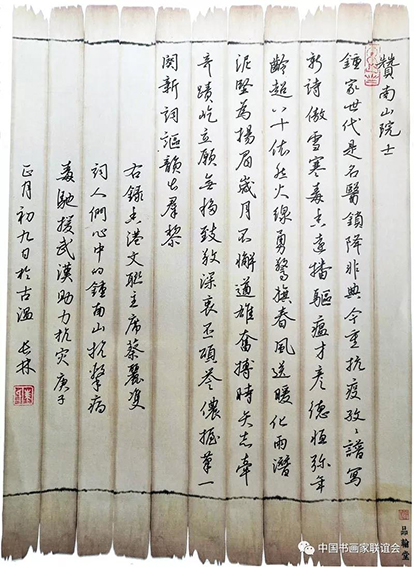 贊南山院士
鍾家世代是名醫鎖降非典今重抗疫孜〻譜寫
新詩傲雪寒香遠播驅瘟才彥德恒弥年
齡超八十依然火線勇春風送暖化雨潛
泥堅為揚眉歲月不懈道雄奮搏時矢志牽
奇蹟屹立願無致敬深衷丕碩儂握筆一
闋新詞謳韻出羣黎
右錄香港文聯主席蔡麗雙
詞人們心中的鍾南山抗擊病
毒馳援武漢助力抗灾庚子
正月初九日於古溫 長林
中国书画家联谊会